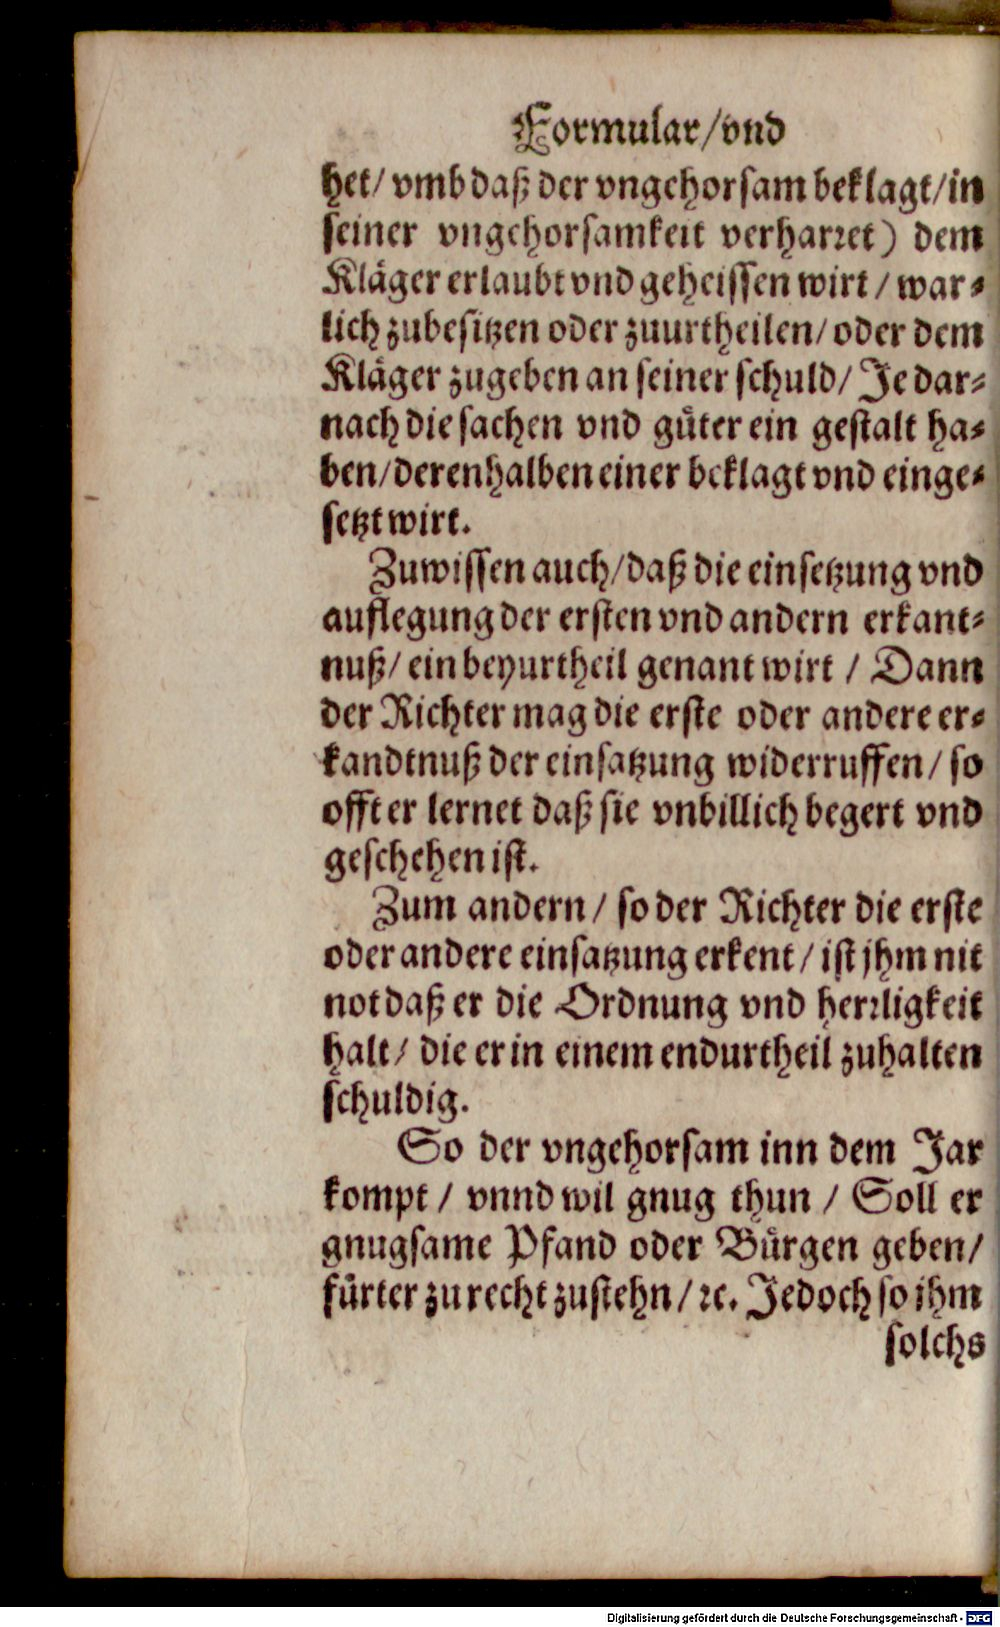 Formular/vnd
het/ vmb daß der vngehorsam beklagt/in
seiner vngehorsamkeit verharret) dem
Kläger erlaubt vnd geheissen wirt / war-
lich zubesitzen oder zuurtheilen/ oder dem
Kläger zugeben an seiner schuld/ Je dar-
nach die sachen vnd güter ein gestalt ha-
ben/derenhalben einer beklagt vnd einge-
setzt wirt.
Zuwissen auch/daß die einsetzung vnd
auflegung der ersten vnd andern erkant-
nuß/ ein beyurtheil genant wirt / Dann
der Richter mag die erste oder andere er-
kandtnuß der einsatzung widerruffen/ so
offt er lernet daß sie vnbillich begert vnd
geschehen ist.
Zum andern / so der Richter die erste
oder andere einsatzung erkent / ist jhm nit
not daß er die Ordnung vnd herrligkeit
halt/ die er in einem endurtheil zuhalten
schuldig.
So der vngehorsam inn dem Jar
kompt / vnnd wil gnug thun / Soll er
gnugsame Pfand oder Bürgen geben/
fürter zu recht zustehn/ ꝛc. Jedoch so ihm
solchs
Digitalisierung gefördert durch die Deutsche Forschungsgemeinschaft - DFG